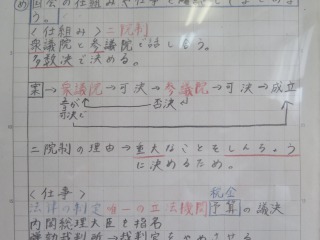 め 国会の仕組みや仕事を
う。
〈仕組み〉二院制
衆議院と参議院で話し合う。
多数決で決める。
案→衆議院→可決→参議院→可決→成立
否決
可決で
二院制の理由→重大なことをしんちょう
に決めるため。
〈仕事〉
税金
法律の制定 唯一の立法機関 予算の議決
内閣総理大臣を指名